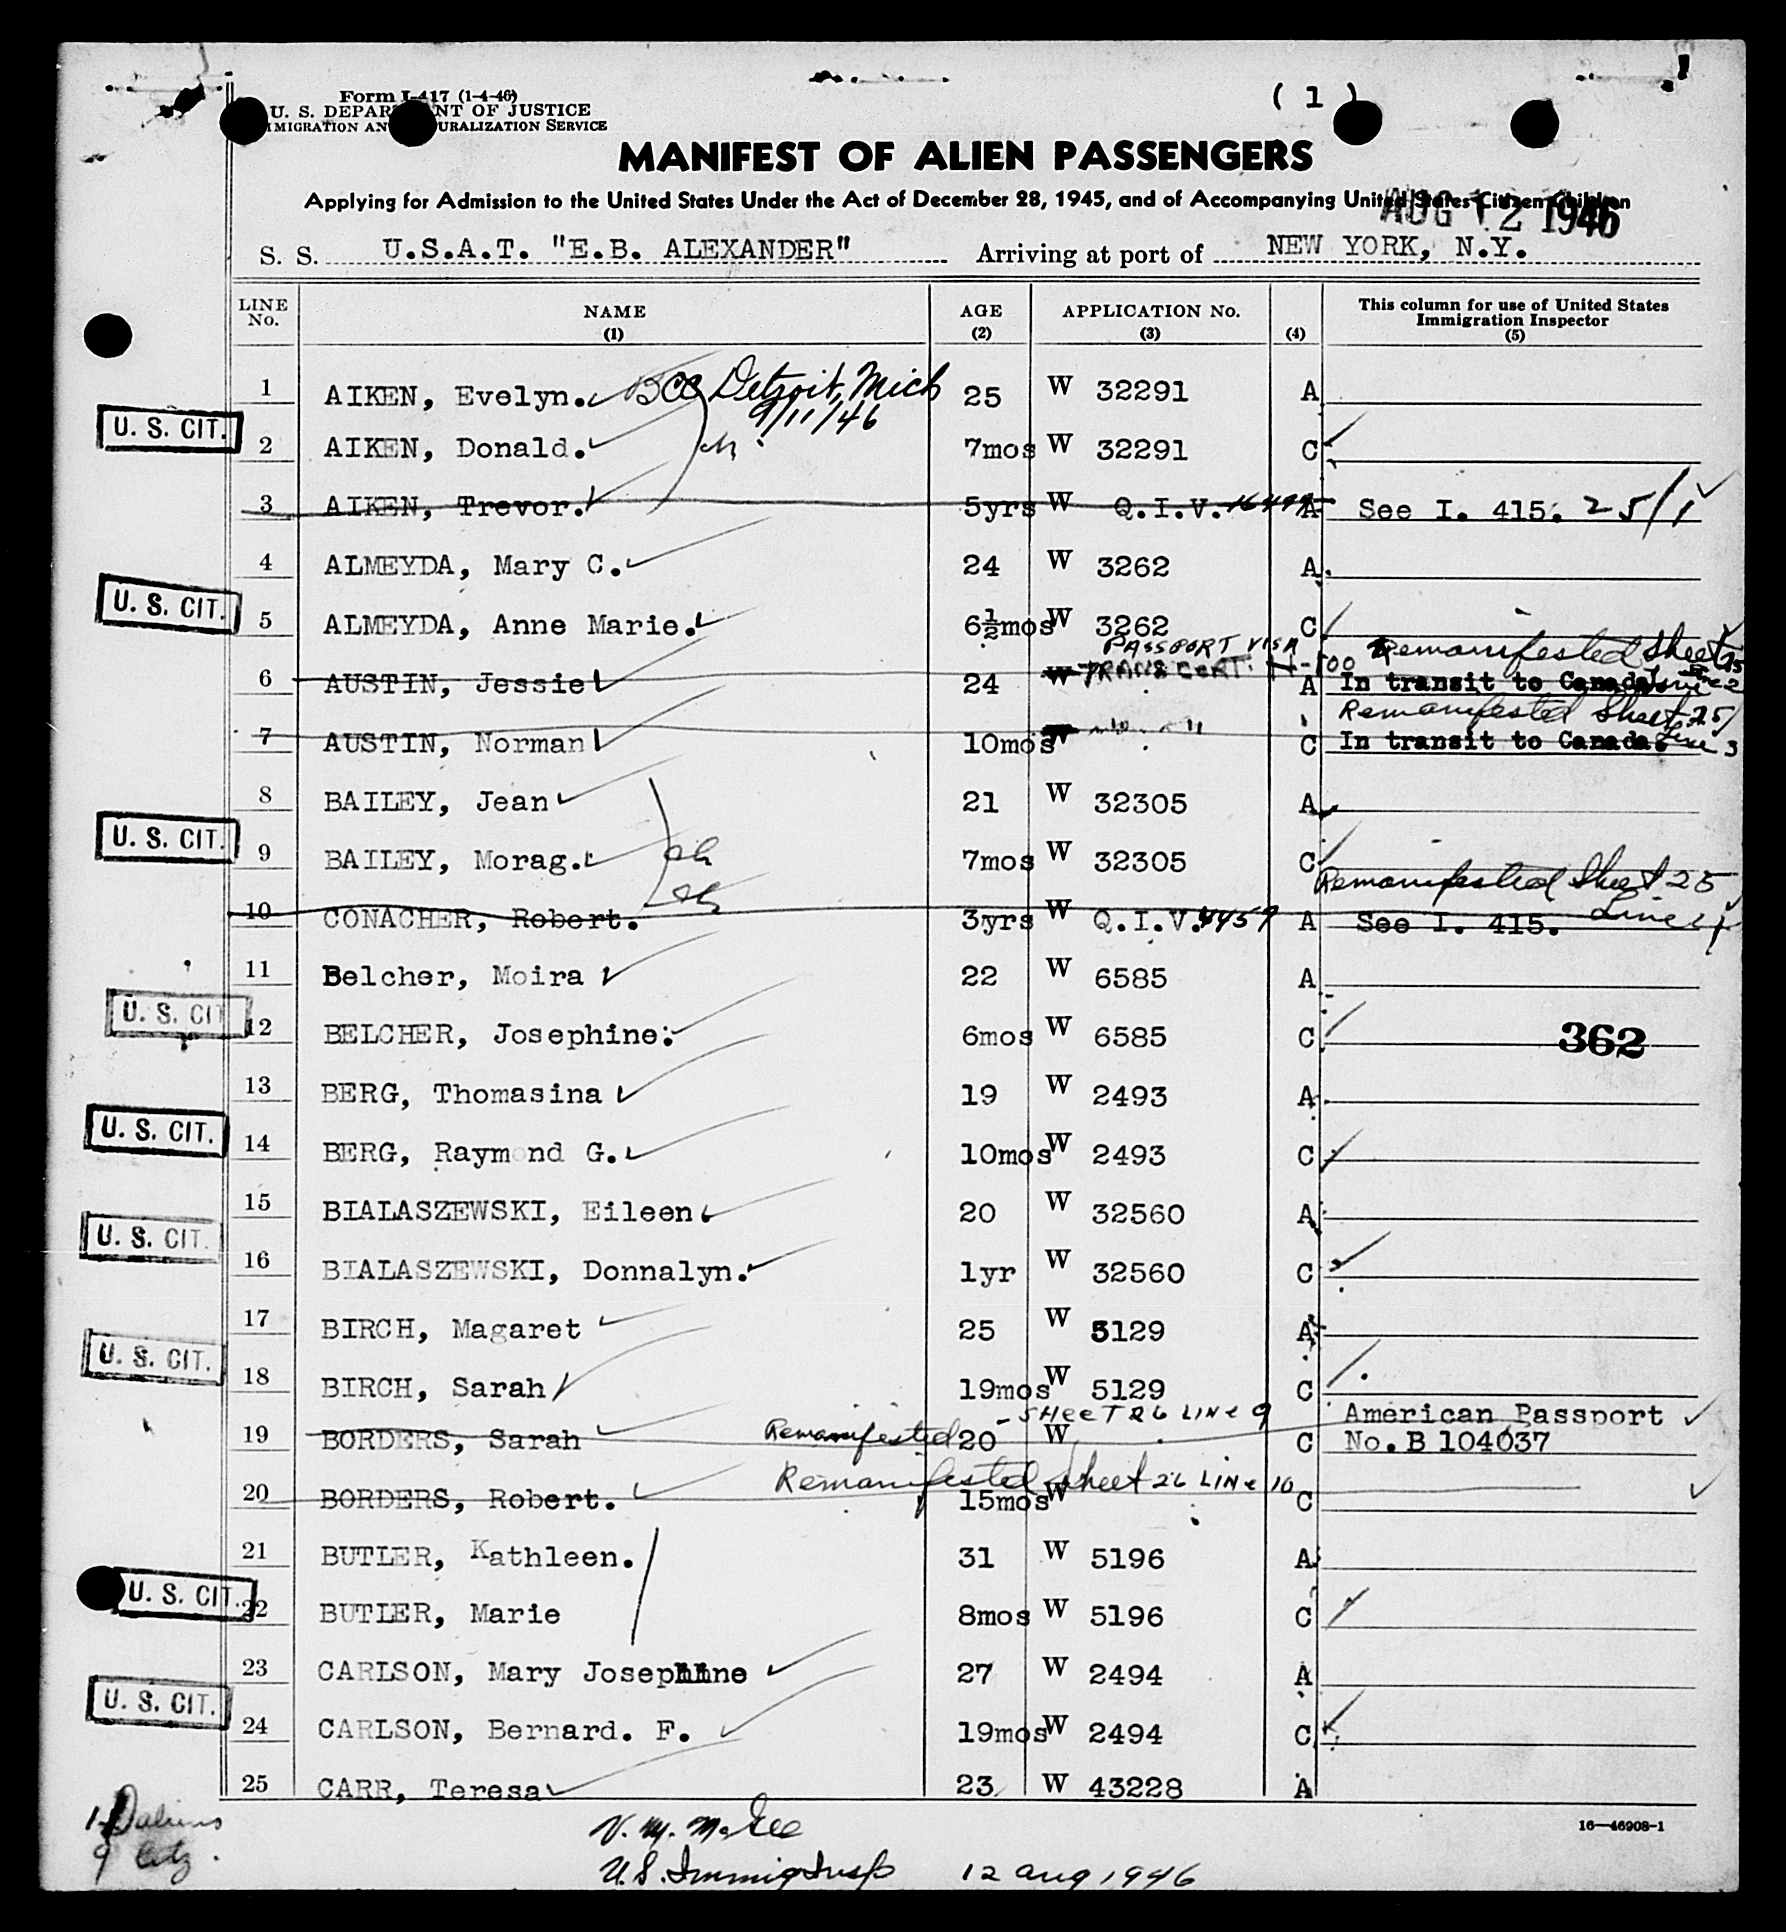 ( 1 )
Form I-417 (1-4-46)
U. S. DEPAR NT OF JUSTICE
MIGRATION AN URALIZATION SERVICE
MANIFEST OF ALIEN PASSENGERS
Applying for Admission to the United States Under the Act of December 28, 1945, and of Accompanying United States Citizen Children
AUG 12 1946
S. S. U.S.A.T. "E.B. ALEXANDER" Arriving at port of NEW YORK, N.Y.
LINE No. NAME (1) AGE (2) APPLICATION No. (3) (4) This column for use of United States Immigration Inspector (5)
1 AIKEN, Evelyn. BCC Detroit, Mich 25 W 32291 A
9/11/46
U. S. CIT. 2 AIKEN, Donald. 7mos W 32291 C
3 AIKEN, Trevor. 5yrs W Q.I.V. A See I. 415. 25/1
4 ALMEYDA, Mary C. 24 W 3262 A
U. S. CIT. 5 ALMEYDA, Anne Marie. 6½mos W 3262 C
PASSPORT VISA Remanifested Sheet 25
6 AUSTIN, Jessie 24 W TRANS CERT. A In transit to Canada. Line 2
Remanifested Sheet 25/
7 AUSTIN, Norman 10mos W " " C In transit to Canada. Line 3
8 BAILEY, Jean 21 W 32305 A
U. S. CIT. 9 BAILEY, Morag. 7mos W 32305 C
Remanifested Sheet 25
10 CONACHER, Robert. 3yrs W Q.I.V. 4459 A See I. 415. Line 4
11 Belcher, Moira 22 W 6585 A
U. S. CIT 12 BELCHER, Josephine. 6mos W 6585 C 362
13 BERG, Thomasina 19 W 2493 A
U. S. CIT. 14 BERG, Raymond G. 10mos W 2493 C
15 BIALASZEWSKI, Eileen 20 W 32560 A
U. S. CIT. 16 BIALASZEWSKI, Donnalyn. 1yr W 32560 C
17 BIRCH, Magaret 25 W 5129 A
U. S. CIT. 18 BIRCH, Sarah 19mos W 5129 C
Remanifested - SHEET 26 LINE 9 American Passport
19 BORDERS, Sarah 20 W C No. B 104037
Remanifested Sheet 26 LINE 10
20 BORDERS, Robert. 15mos W C
21 BUTLER, Kathleen. 31 W 5196 A
U. S. CIT. 22 BUTLER, Marie 8mos W 5196 C
23 CARLSON, Mary Josephine 27 W 2494 A
U. S. CIT. 24 CARLSON, Bernard. F. 19mos W 2494 C
25 CARR, Teresa 23 W 43228 A
16—46908-1
aliens
9 Citz.
V. M. McGee
U.S. Immig Insp 12 Aug 1946